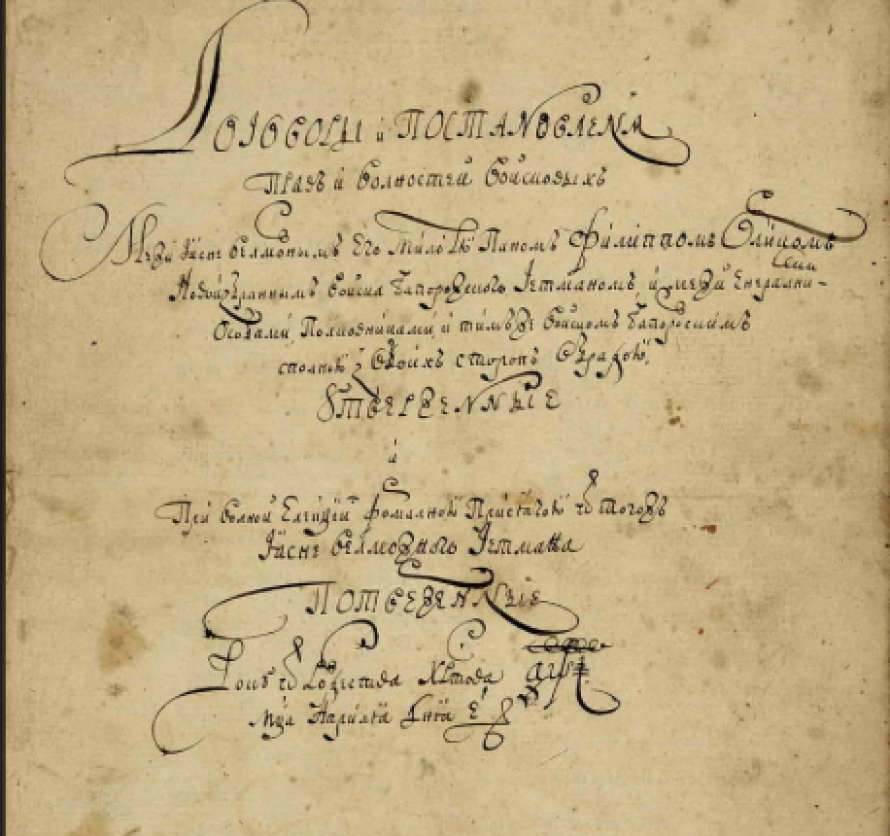 Договоры и Постановленя
Правъ и волностей войсковыхъ
Межи Ясне велможнымъ Его Милостю Паномъ Филиппомъ Орликомъ
Новоизбраннымъ войска Запорожского Гетманомъ, и межи Енералними
Особами Полковниками, и тимъ же войскомъ Запорозскимъ
сполною з обойхъ сторонъ обрадою
Утверженные
и
При волной Елекцїи формалною Присягою ѿ тогожъ
Ясне велможного Гетмана
Потверженные
Року ѿ Рожества Христова аѱі
Мца Априля дня е